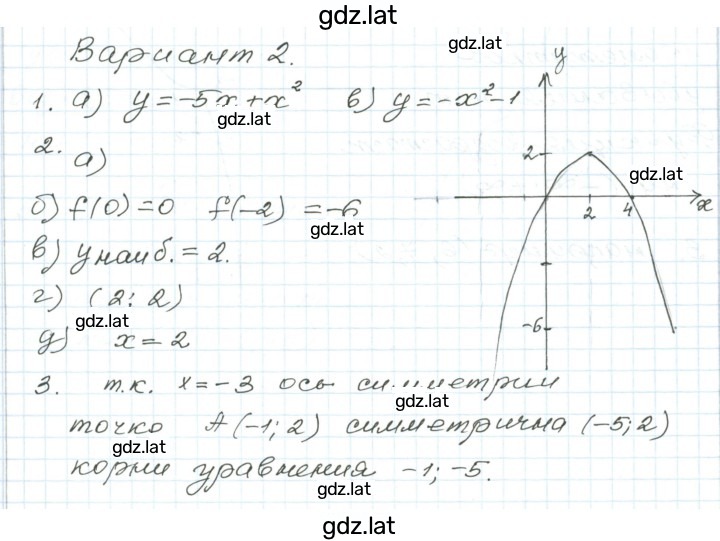 gdz.lat
Вариант 2.
gdz.lat
1. а) y = -5x + x² в) y = -x² - 1
gdz.lat
2. а)
y
2
gdz.lat
2 4 x
-6
б) f(0) = 0 f(-2) = -6
gdz.lat
в) y наиб. = 2.
г) (2; 2)
gdz.lat
д) x = 2
3. т.к. x = -3 ось симметрии
gdz.lat
точко A(-1; 2) симметрична (-5; 2)
gdz.lat
корни уравнения -1; -5.
gdz.lat
gdz.lat